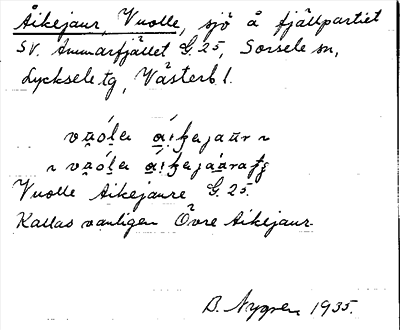 Åikejaur, Vuolle, sjö å fjällpartiet
SV. Ammarfjället G. 25, Sorsele sn,
Lycksele tg, Västerb. l.
Vuolle Aikejaure G. 25.
Kallas vanligen Övre Aikejaur.
D. Nygren 1935.